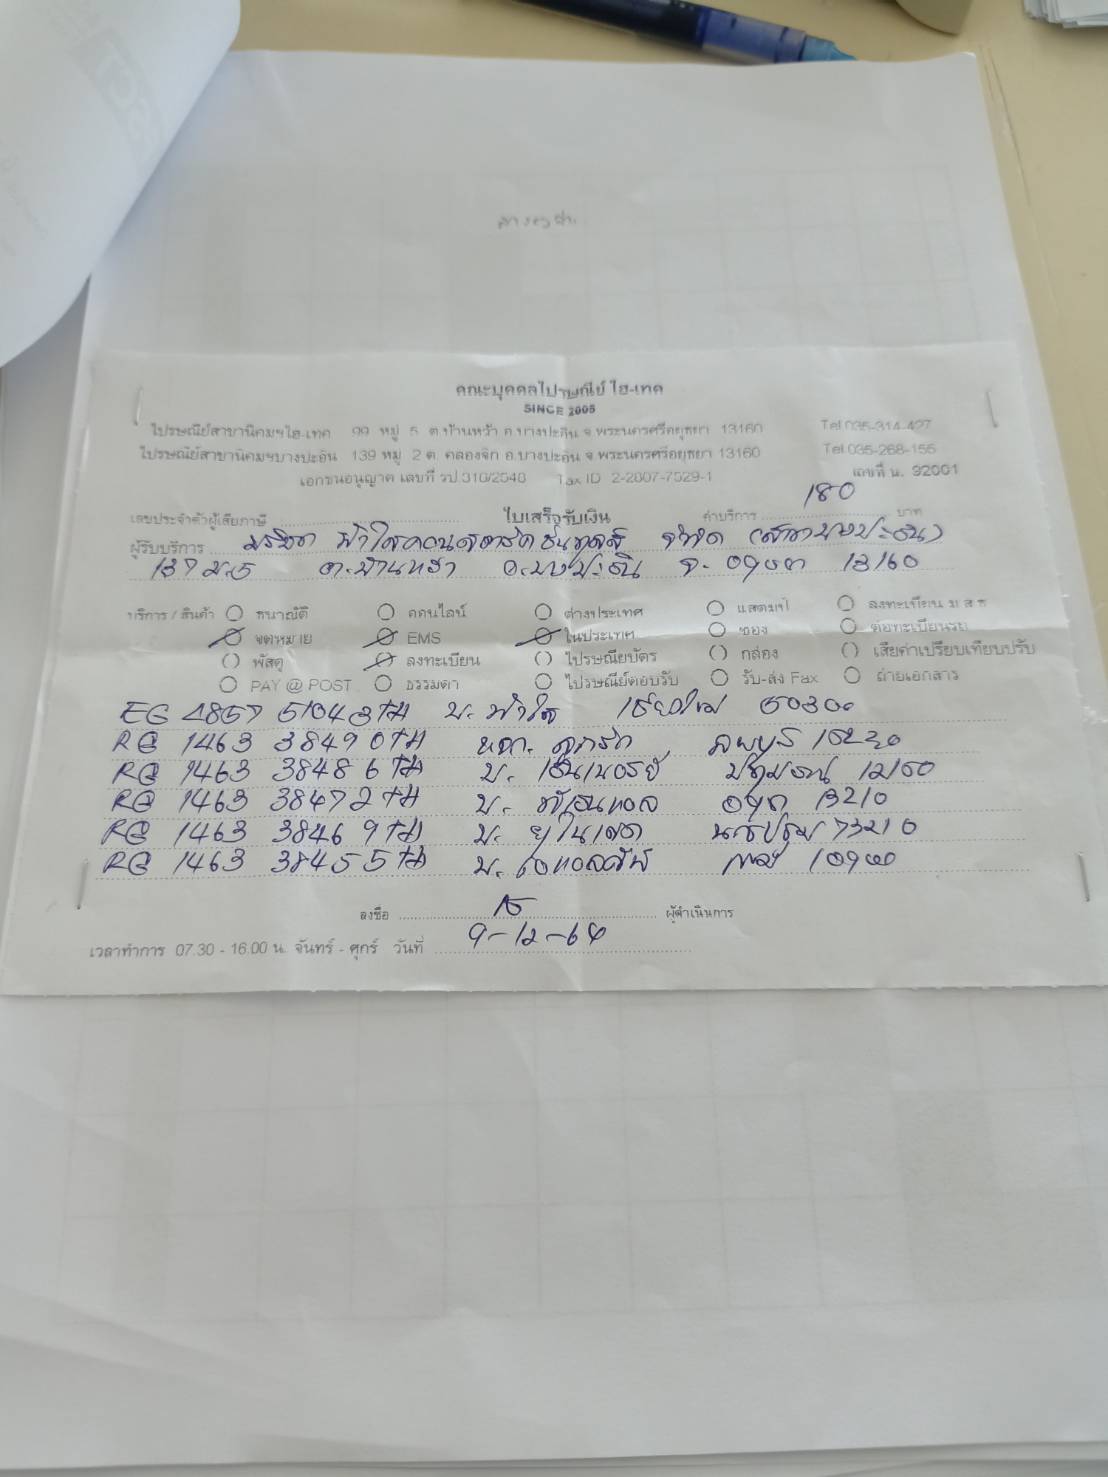 คณะบุคคลไปรษณีย์ ไฮ-เทค
SINCE 2005
ไปรษณีย์สาขานิคมฯไฮ-เทค 99 หมู่ 5 ต.บ้านหว้า อ.บางปะอิน จ.พระนครศรีอยุธยา 13160 Tel 035-314-427
ไปรษณีย์สาขานิคมฯบางปะอิน 139 หมู่ 2 ต. คลองจิก อ.บางปะอิน จ.พระนครศรีอยุธยา 13160 Tel 035-268-155
เอกชนอนุญาต เลขที่ รป.310/2548 Tax ID 2-2007-7529-1 เลขที่ น. 92001
เลขประจำตัวผู้เสียภาษี ใบเสร็จรับเงิน ค่าบริการ 180 บาท
ผู้รับบริการ จำกัด (สาขาบางปะอิน)
137 ม.5 ต.บ้านหว้า อ.บางปะอิน จ. อยุธยา 13160
บริการ / สินค้า ธนาณัติ ออนไลน์ ต่างประเทศ แสตมป์ ลงทะเบียน ม ส ธ
จดหมาย EMS ในประเทศ ซอง ต่อทะเบียนรถ
พัสดุ ลงทะเบียน ไปรษณียบัตร กล่อง เสียค่าเปรียบเทียบปรับ
PAY @ POST ธรรมดา ไปรษณีย์ตอบรับ รับ-ส่ง Fax ถ่ายเอกสาร
4857 5104 3 TH บ. ฟ้าใส เชียงใหม่ 50300
1463 3849 0 TH หจก. ลพบุรี 15230
1463 3848 6 TH บ. เอ็นเนอร์ยี่ ปทุมธานี 12150
1463 3847 2 TH บ. อยุธยา 13210
1463 3846 9 TH บ. นครปฐม 73210
1463 3845 5 TH บ. กทม 10900
ลงชื่อ ผู้ดำเนินการ
เวลาทำการ 07.30 - 16.00 น. จันทร์ - ศุกร์ วันที่ 9-12-64